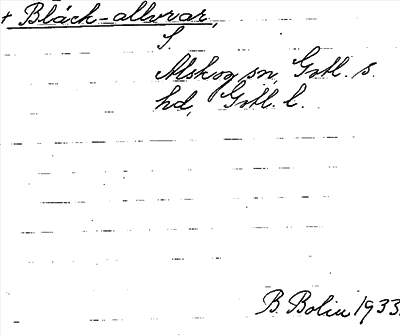 + Bläck-allvrar,
S.
Alskog sn, Gotl. s.
hd, Gotl. l.
B. Bolin 1933.